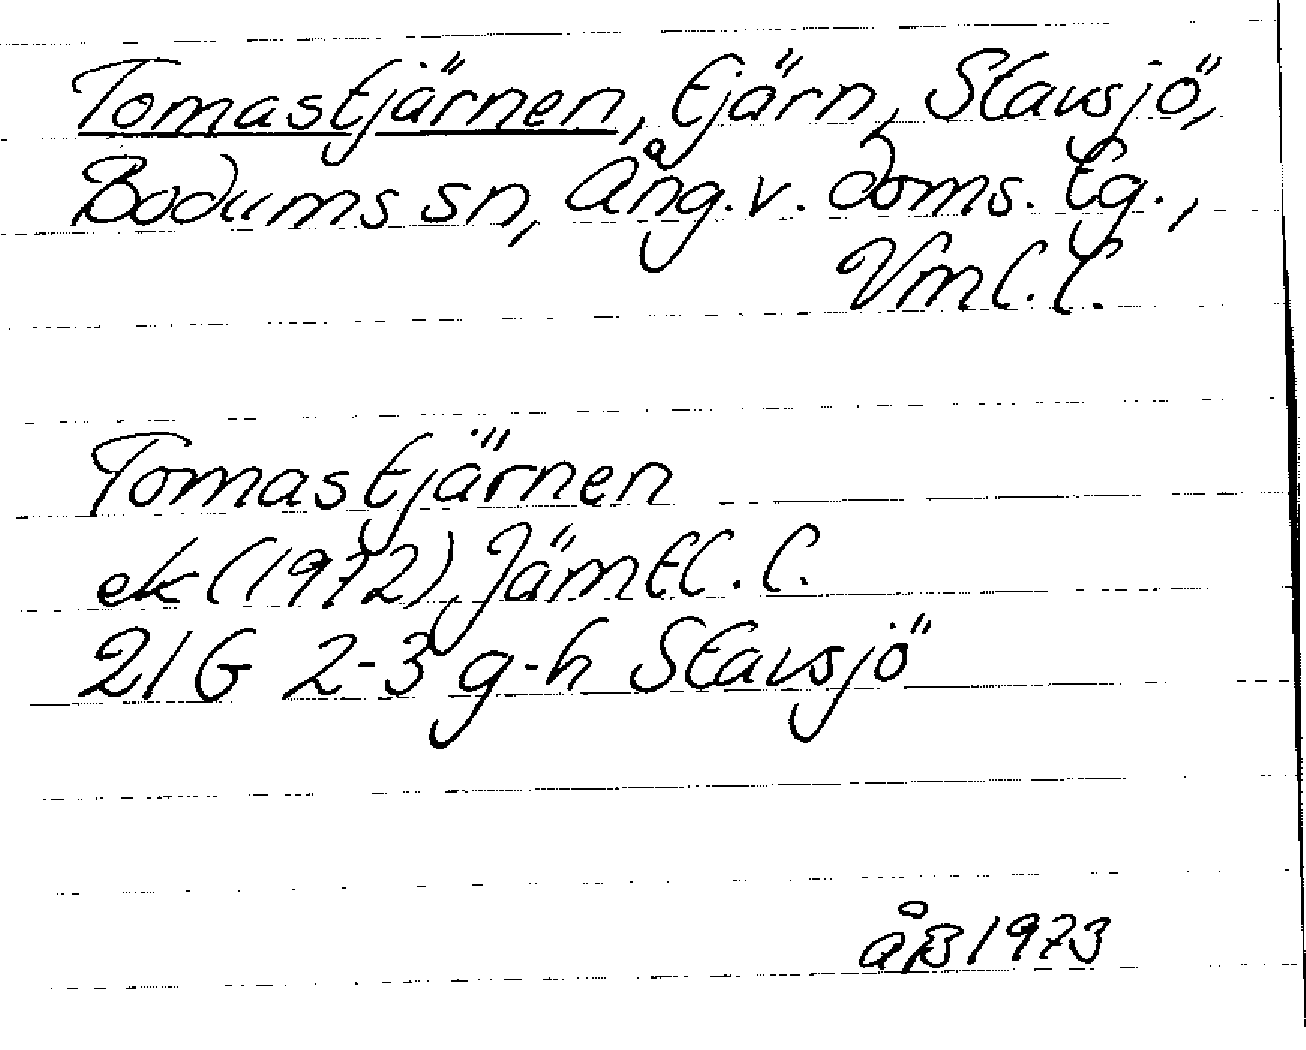 Tomastjärnen, tjärn, Stavsjö,
Bodums sn, Ång. v. doms. tg.,
Vml. l.
Tomastjärnen
ek (1972), Jämtl. l.
21G 2-3 g-h Stavsjö
åB 1973